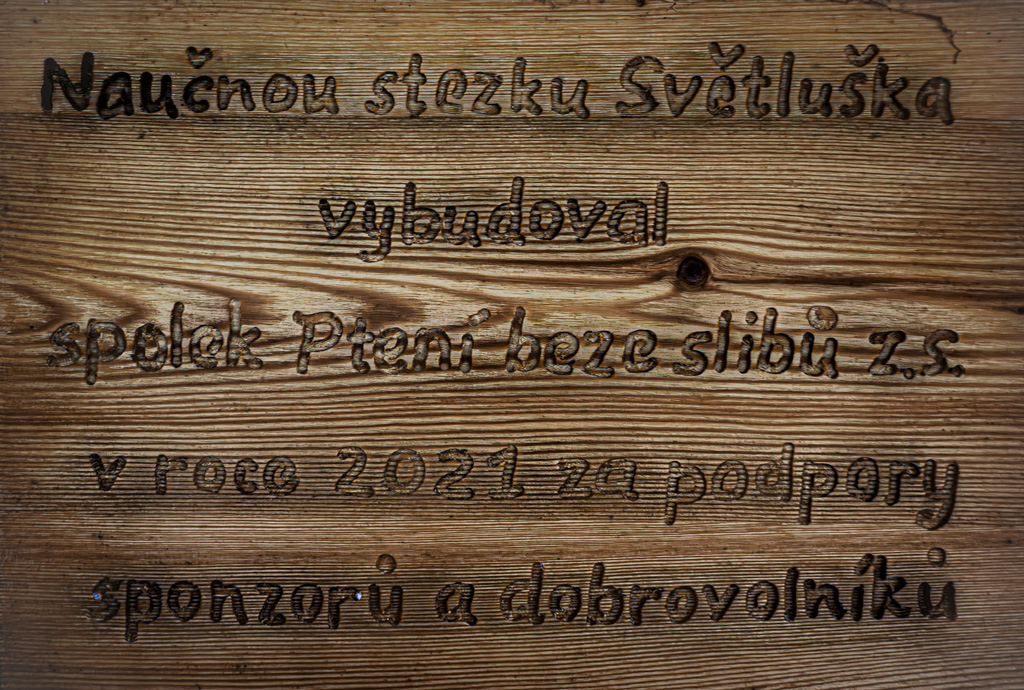 Naučnou stezku Světluška
vybudoval
spolek Ptení beze slibů z.s.
v roce 2021 za podpory
sponzorů a dobrovolníků